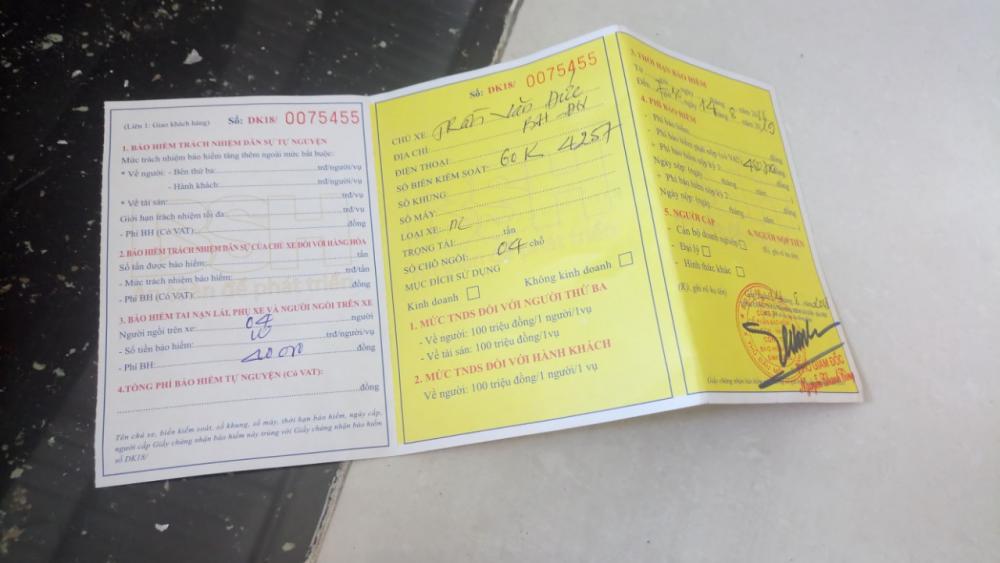 (Liên 1: Giao khách hàng) Số: DK18/ 0075455
1. BẢO HIỂM TRÁCH NHIỆM DÂN SỰ TỰ NGUYỆN
Mức trách nhiệm bảo hiểm tăng thêm ngoài mức bắt buộc:
* Về người: - Bên thứ ba: trđ/người/vụ
- Hành khách: trđ/người/vụ
* Về tài sản: trđ/vụ
Giới hạn trách nhiệm tối đa: trđ/vụ
- Phí BH (Có VAT): đồng
2. BẢO HIỂM TRÁCH NHIỆM DÂN SỰ CỦA CHỦ XE ĐỐI VỚI HÀNG HÓA
Số tấn được bảo hiểm: tấn
- Mức trách nhiệm bảo hiểm: trđ/tấn
- Phí BH (Có VAT): đồng
3. BẢO HIỂM TAI NẠN LÁI, PHỤ XE VÀ NGƯỜI NGỒI TRÊN XE
Người ngồi trên xe: 04 người
- Số tiền bảo hiểm: 10 trđ/người/vụ
- Phí BH: 40 000 đồng
4.TỔNG PHÍ BẢO HIỂM TỰ NGUYỆN (Có VAT):
đồng
Tên chủ xe, biển kiểm soát, số khung, số máy, thời hạn bảo hiểm, ngày cấp,
người cấp Giấy chứng nhận bảo hiểm này trùng với Giấy chứng nhận bảo hiểm
số DK18/
Số: DK18/ 0075455
CHỦ XE: Trần Văn Đức
ĐỊA CHỈ:
ĐIỆN THOẠI:
SỐ BIỂN KIỂM SOÁT: 60K 4257
SỐ KHUNG:
SỐ MÁY:
LOẠI XE:
TRỌNG TẢI: tấn
SỐ CHỖ NGỒI: 04 chỗ
MỤC ĐÍCH SỬ DỤNG
Kinh doanh Không kinh doanh
1. MỨC TNDS ĐỐI VỚI NGƯỜI THỨ BA
- Về người: 100 triệu đồng/1 người/1vụ
- Về tài sản: 100 triệu đồng/1vụ
2. MỨC TNDS ĐỐI VỚI HÀNH KHÁCH
Về người: 100 triệu đồng/1 người/1 vụ
3. THỜI HẠN BẢO HIỂM
Từ giờ ngày tháng năm
Đến ngày 14 tháng 8 năm
4. PHÍ BẢO HIỂM
- Phí bảo hiểm: đồng
+ Phí bảo hiểm nộp kỳ 1: đồng
Ngày nộp: (ngày tháng năm )
+ Phí bảo hiểm nộp kỳ 2: đồng
Ngày nộp: (ngày tháng năm )
5. NGƯỜI CẤP 6. NGƯỜI NỘP TIỀN
- Cán bộ doanh nghiệp (Ký, ghi rõ họ tên)
- Đại lý
- Hình thức khác
(Ký, ghi rõ họ tên)
GIÁM ĐỐC